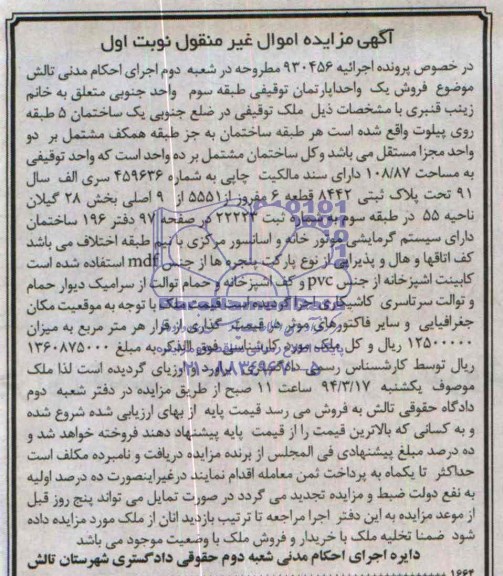 آگهی مزایده اموال غیر منقول نوبت اول
در خصوص پرونده اجرائیه ۹۳۰۴۵۶ مطروحه در شعبه دوم اجرای احکام مدنی تالش
موضوع فروش یک واحداپارتمان توقیفی طبقه سوم واحد جنوبی متعلق به خانم
زینب قنبری با مشخصات ذیل ملک توقیفی در ضلع جنوبی یک ساختمان ۵ طبقه
روی پیلوت واقع شده است هر طبقه ساختمان به جز طبقه همکف مشتمل بر دو
واحد مجزا مستقل می باشد وکل ساختمان مشتمل بر ده واحد است که واحد توقیفی
به مساحت ۱۰۸/۸۷ دارای سند مالکیت چاپی به شماره ۴۵۹۶۳۶ سری الف سال
۹۱ تحت پلاک ثبتی ۸۴۴۲ قطعه ۶ مفروز از ۵۵۵۱ از ۹ اصلی بخش ۲۸ گیلان
ناحیه ۵۵ در طبقه سوم به شماره ثبت ۲۲۲۲۳ در صفحه ۹۷ دفتر ۱۹۶ ساختمان
دارای سیستم گرمایشی موتور خانه و اسانسور مرکزی با نیم طبقه اختلاف می باشد
کف اتاقها و هال و پذیرایی از نوع پارکت پنجره ها از جنس mdf استفاده شده است
کابینت اشپزخانه از جنس pvc و کف اشپزخانه و حمام توالت از سرامیک دیوار حمام
و توالت سرتاسری کاشیکاری اجرا گردیده است قیمت ملک با توجه به موقعیت مکان
جغرافیایی و سایر فاکتورهای موثر در قیمت گذاری از قرار هر متر مربع به میزان
۱۲۵۰۰۰۰۰ ریال و کل ملک مورد کارشناسی فوق الذکر به مبلغ ۱۳۶۰۸۷۵۰۰۰
ریال توسط کارشناس رسمی دادگستری براورد و ارزیابی گردیده است لذا ملک
موصوف یکشنبه ۹۴/۳/۱۷ ساعت ۱۱ صبح از طریق مزایده در دفتر شعبه دوم
دادگاه حقوقی تالش به فروش می رسد قیمت پایه از بهای ارزیابی شده شروع شده
و به کسانی که بالاترین قیمت را از قیمت پایه پیشنهاد دهند فروخته خواهد شد و
ده درصد مبلغ پیشنهادی فی المجلس از برنده مزایده دریافت و نامبرده مکلف است
حداکثر تا یکماه به پرداخت ثمن معامله اقدام نمایند درغیراینصورت ده درصد اولیه
به نفع دولت ضبط و مزایده تجدید می گردد در صورت تمایل می تواند پنج روز قبل
از موعد مزایده به این دفتر اجرا مراجعه تا ترتیب بازدید انان از ملک مورد مزایده داده
شود ضمنا تخلیه ملک با خریدار و فروش ملک با وضعیت موجود می باشد
دایره اجرای احکام مدنی شعبه دوم حقوقی دادگستری شهرستان تالش
۱۶۶۴